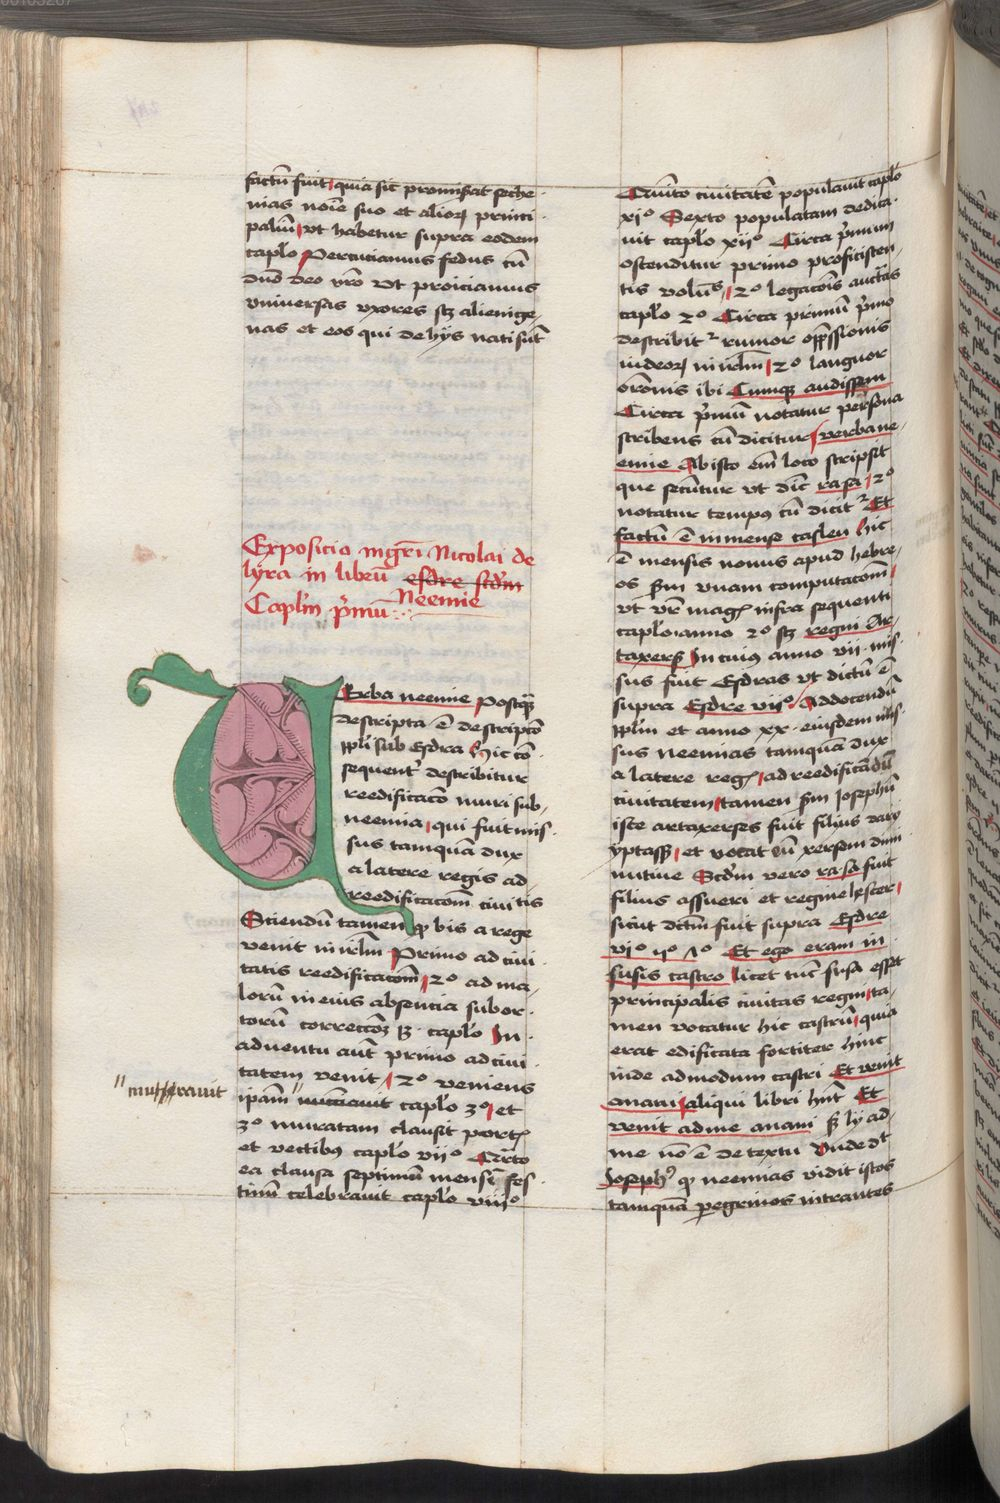 factū fuit quia sic promiserat seche
nias noīe suo et alioꝝ princi
paliū vt habetur supra eodem
caplō Percuciamus fedus cū
dūo deo nrō vt proiciamus
vniuersas vxores scꝫ alienige
nas et eos qui de hijs nati sūt
Exposicio mgrī Nicolai de
lyra in librū esdre scdm
Neemie
Caplm p̄mū
Uerba neemie Postqꝫ
descripta ē descripto
ppli sub Esdra Hic cō
sequent describitur
reedificaco muri sub
neemia qui fuit mis
sus tamquā dux
a latere regis ad
reedificacōm ciuitis
Sciendū tamen ꝙ bis a rege
venit in irlm Primo ad ciui
tatis reedificacōm 2º ad ma
lorū in eius absencia subor
torū correccōꝫ caplō In
aduentu aūt primo ad ciui
tatem venit 2º veniens
ipām caplō 3º et
3º muratam clausit port
et vectibꝰ caplō viiº Qrto
ea clausa septimū mensē fes
tiuū celebrauit caplō viiiº
Quinto ciuitatē populauit caplō
xiº Sexto populatam dedica
uit caplō xiiº Circa p̄mum
ostenditur primo proficiscen
tis 2º legacōis
caplō 2º Circa primū p̄mo
describit rumor opp̄ssionis
iudeoꝝ in irlm 2º languor
orōnis ibi Cumqꝫ audissem
Circa p̄mū notatur persona
scribens cū dicitur verba ne
emie Ab isto em̄ loco scripsit
que secūtur vt dic̄ ra sa 2º
notatur tempꝰ cū dicit Et
factū ē in mense casleu hic
ē mensis nonus apud hebre
os sm̄ vnam computacōm
vt infra sequenti
caplō anno 2º scꝫ regni Ar
taxerß In cuiꝰ anno vii mis
sus fuit Esdras vt dictū ē
supra Esdre viiº Ad docendū
pplm et anno xx eiusdem
sus neemias tamquā dux
a latere reg ad reedificādū
ciuitatem tamen sm̄ Josephū
iste artaxerses fuit filius darij
yptasß et vocat eū xersem dimi
nutiue Scdm vero ra sa fuit
filius assueri et regine hester
sicut dctm̄ fuit supra Esdre
viº Et ego eram in
susis castro licet tūc susa esset
principalis ciuitas regni ta
men vocatur hic castrū quia
erat edificata fortiter hinc
inde ad modum castri Et venit
anani aliqui libri hn̄t Et
venit ad me anani ß ly ad
me nō ē de textu Unde dt
Joseph ꝙ neemias vidit istos
tamquā pegrinos intrantes